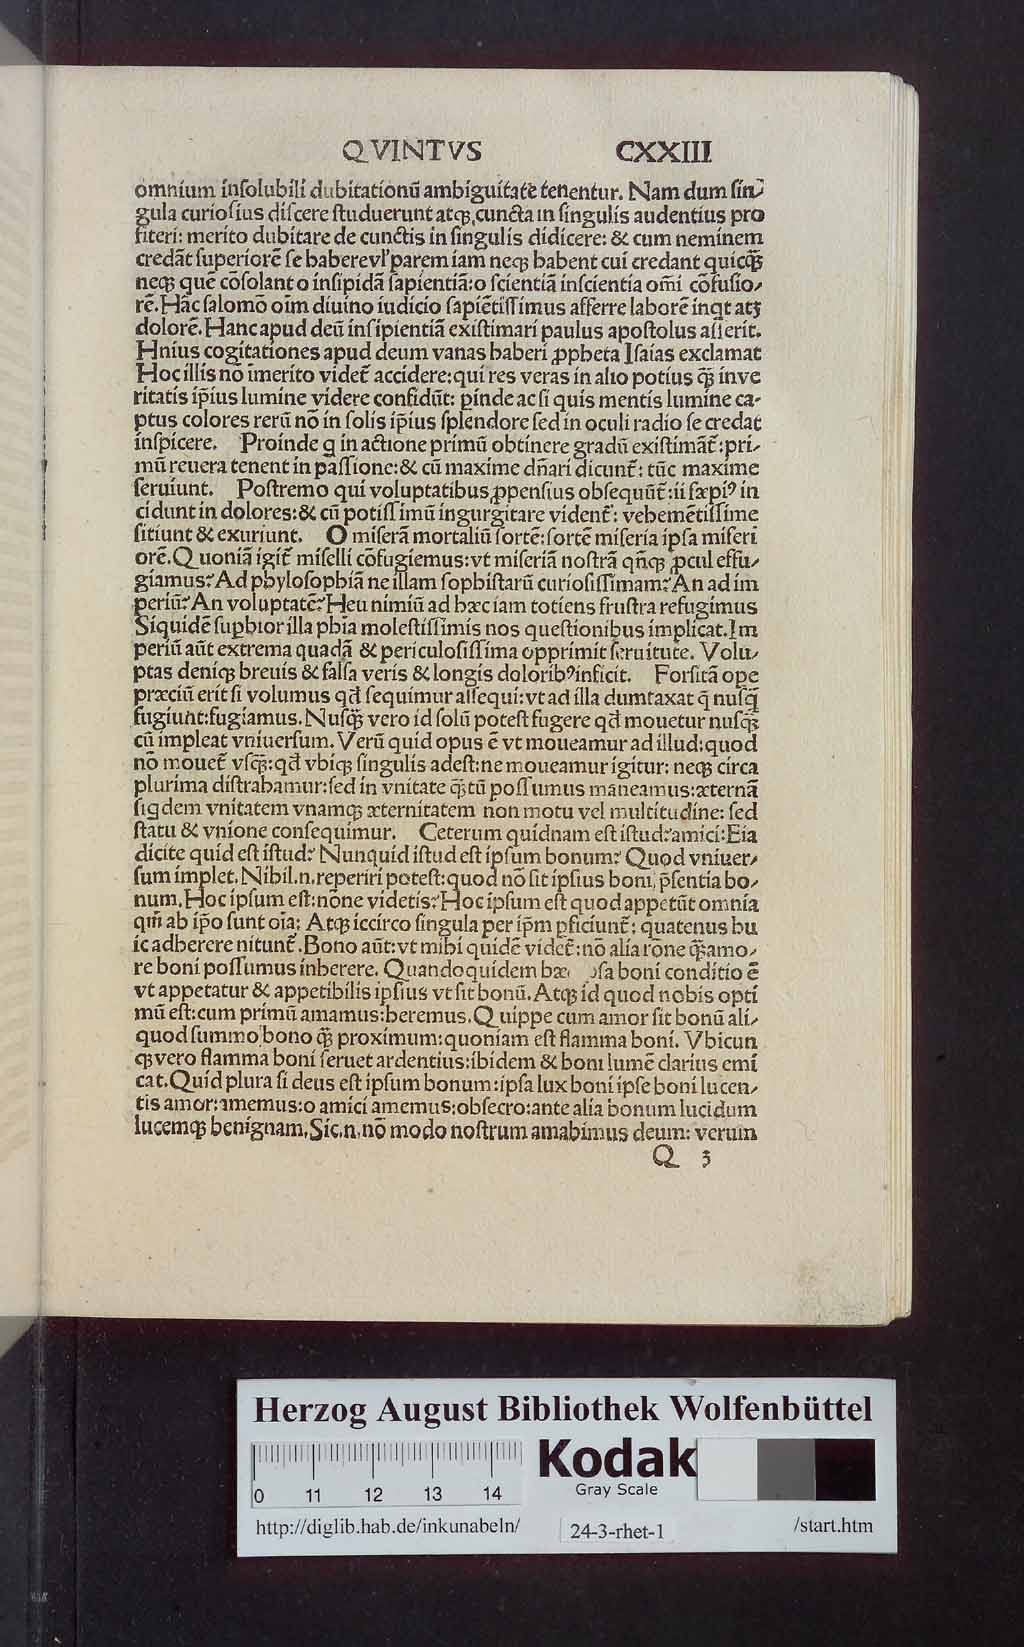 QVINTVS CXXIII
omnium insolubili dubitationū ambiguitate tenentur. Nam dum sin
gula curiosius discere studuerunt atqꝫ cuncta in singulis audentius pro
fiteri: merito dubitare de cunctis in singulis didicere: & cum neminem
credāt superiorē se habere vl' parem iam neqꝫ habent cui credant quicqꝫ̄
neqꝫ quē cōsolant o insipidā sapientiā: o scientiā inscientia om̄i cōfusio⸗
rē. Hāc salomō oīm diuino iudicio sapiētissimus afferre laborē inqt atꝫ
dolorē. Hanc apud deū insipientiā existimari paulus apostolus asserit.
Hnius cogitationes apud deum vanas haberi ꝓpheta Isaias exclamat
Hoc illis nō imerito videt̄ accidere: qui res veras in alto potius qꝫ̄ in ve
ritatis ip̄ius lumine videre confidūt: ꝑinde ac si quis mentis lumine ca⸗
ptus colores rerū nō in solis ip̄ius splendore sed in oculi radio se credat
inspicere. Proinde q in actione primū obtinere gradū existimāt̄: pri⸗
mū reuera tenent in passione: & cū maxime dn̄ari dicunt̄: tūc maxime
seruiunt. Postremo qui voluptatibus ꝓpensius obsequūt̄: ii sæpiꝰ in
cidunt in dolores: & cū potissimū ingurgitare vident̄: vehemētissime
sitiunt & exuriunt. O miserā mortaliū sortē: sortē miseria ipsa miseri
orē. Quoniā igit̄ miselli cōfugiemus: vt miseriā nostrā qn̄qꝫ ꝓcul effu⸗
giamus? Ad phylosophiā ne illam sophistarū curiosissimam? An ad im
periū? An voluptatē? Heu nimiū ad hæc iam totiens frustra refugimus
Siquidē suꝑbior illa phīa molestissimis nos questionibus implicat. Im
periū aūt extrema quadā & periculosissima opprimit seruitute. Volu⸗
ptas deniqꝫ breuis & falsa veris & longis doloribꝰ inficit. Forsitā ope
præciū erit si volumus qd̄ sequimur assequi: vt ad illa dumtaxat q̄ nusq̄
fugiunt: fugiamus. Nusqꝫ̄ vero id solū potest fugere qd̄ mouetur nusqꝫ̄
cū impleat vniuersum. Verū quid opus ē vt moueamur ad illud: quod
nō mouet̄ vsqꝫ̄: qd̄ vbiqꝫ singulis adest: ne moueamur igitur: neqꝫ circa
plurima distrahamur: sed in vnitate qꝫ̄tū possumus maneamus: æternā
siqdem vnitatem vnamqꝫ æternitatem non motu vel multitudine: sed
statu & vnione consequimur. Ceterum quidnam est istud? amici: Eia
dicite quid est istud? Nunquid istud est ipsum bonum? Quod vniuer⸗
sum implet. Nihil .n. reperiri potest: quod nō sit ipsius boni, p̄sentia bo⸗
num. Hoc ipsum est: nōne videtis? Hoc ipsum est quod appetūt omnia
qm̄ ab ip̄o sunt oīa: Atqꝫ iccirco singula per ip̄m ꝑficiunt̄: quatenus hu
ic adherere nitunt̄. Bono aūt: vt mihi quidē videt̄: nō alia rōne qꝫ̄ amo⸗
re boni possumus inherere. Quandoquidem hæ osa boni conditio ē
vt appetatur & appetibilis ipsius vt sit bonū. Atqꝫ id quod nobis opti
mū est: cum primū amamus: heremus. Quippe cum amor sit bonū ali⸗
quod summo bono qꝫ̄ proximum: quoniam est flamma boni. Vbicun
qꝫ vero flamma boni feruet ardentius: ibidem & boni lumē clarius emi
cat. Quid plura si deus est ipsum bonum: ipsa lux boni ipse boni lucen⸗
tis amor: amemus: o amici amemus: obsecro: ante alia bonum lucidum
lucemqꝫ benignam. Sic .n. nō modo nostrum amabimus deum: verum
Q 3
Herzog August Bibliothek Wolfenbüttel
0 11 12 13 14
Kodak
Gray Scale
http://diglib.hab.de/inkunabeln/ 24-3-rhet-1 /start.htm